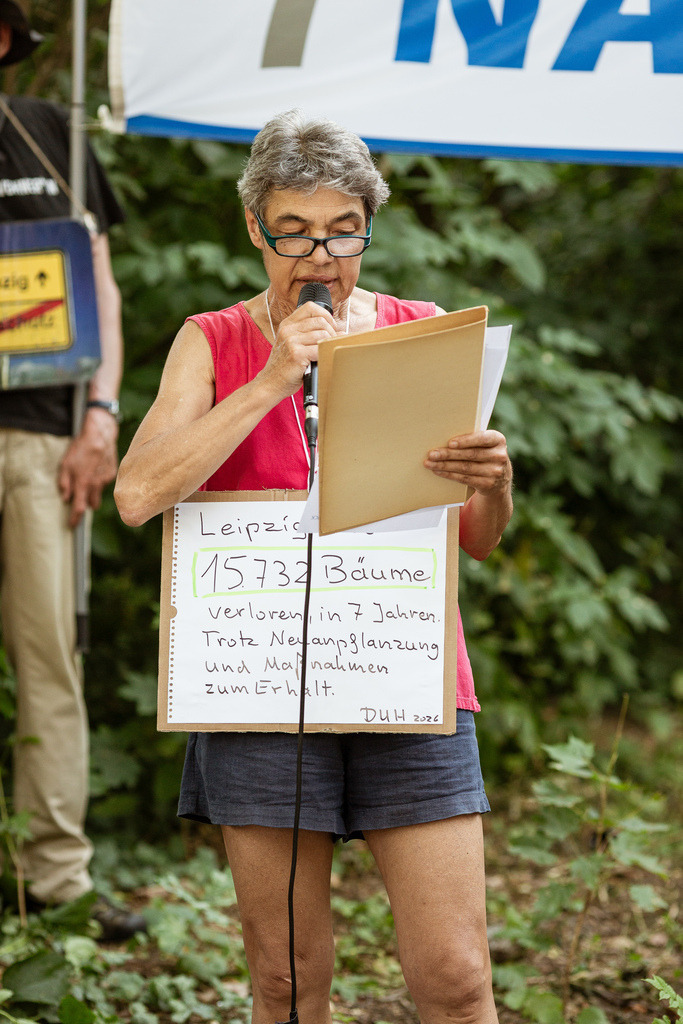 NA
zig
Leipzig
15.732 Bäume
verloren, in 7 Jahren.
Trotz Neuanpflanzung
und Maßnahmen
zum Erhalt.
DUH 2026